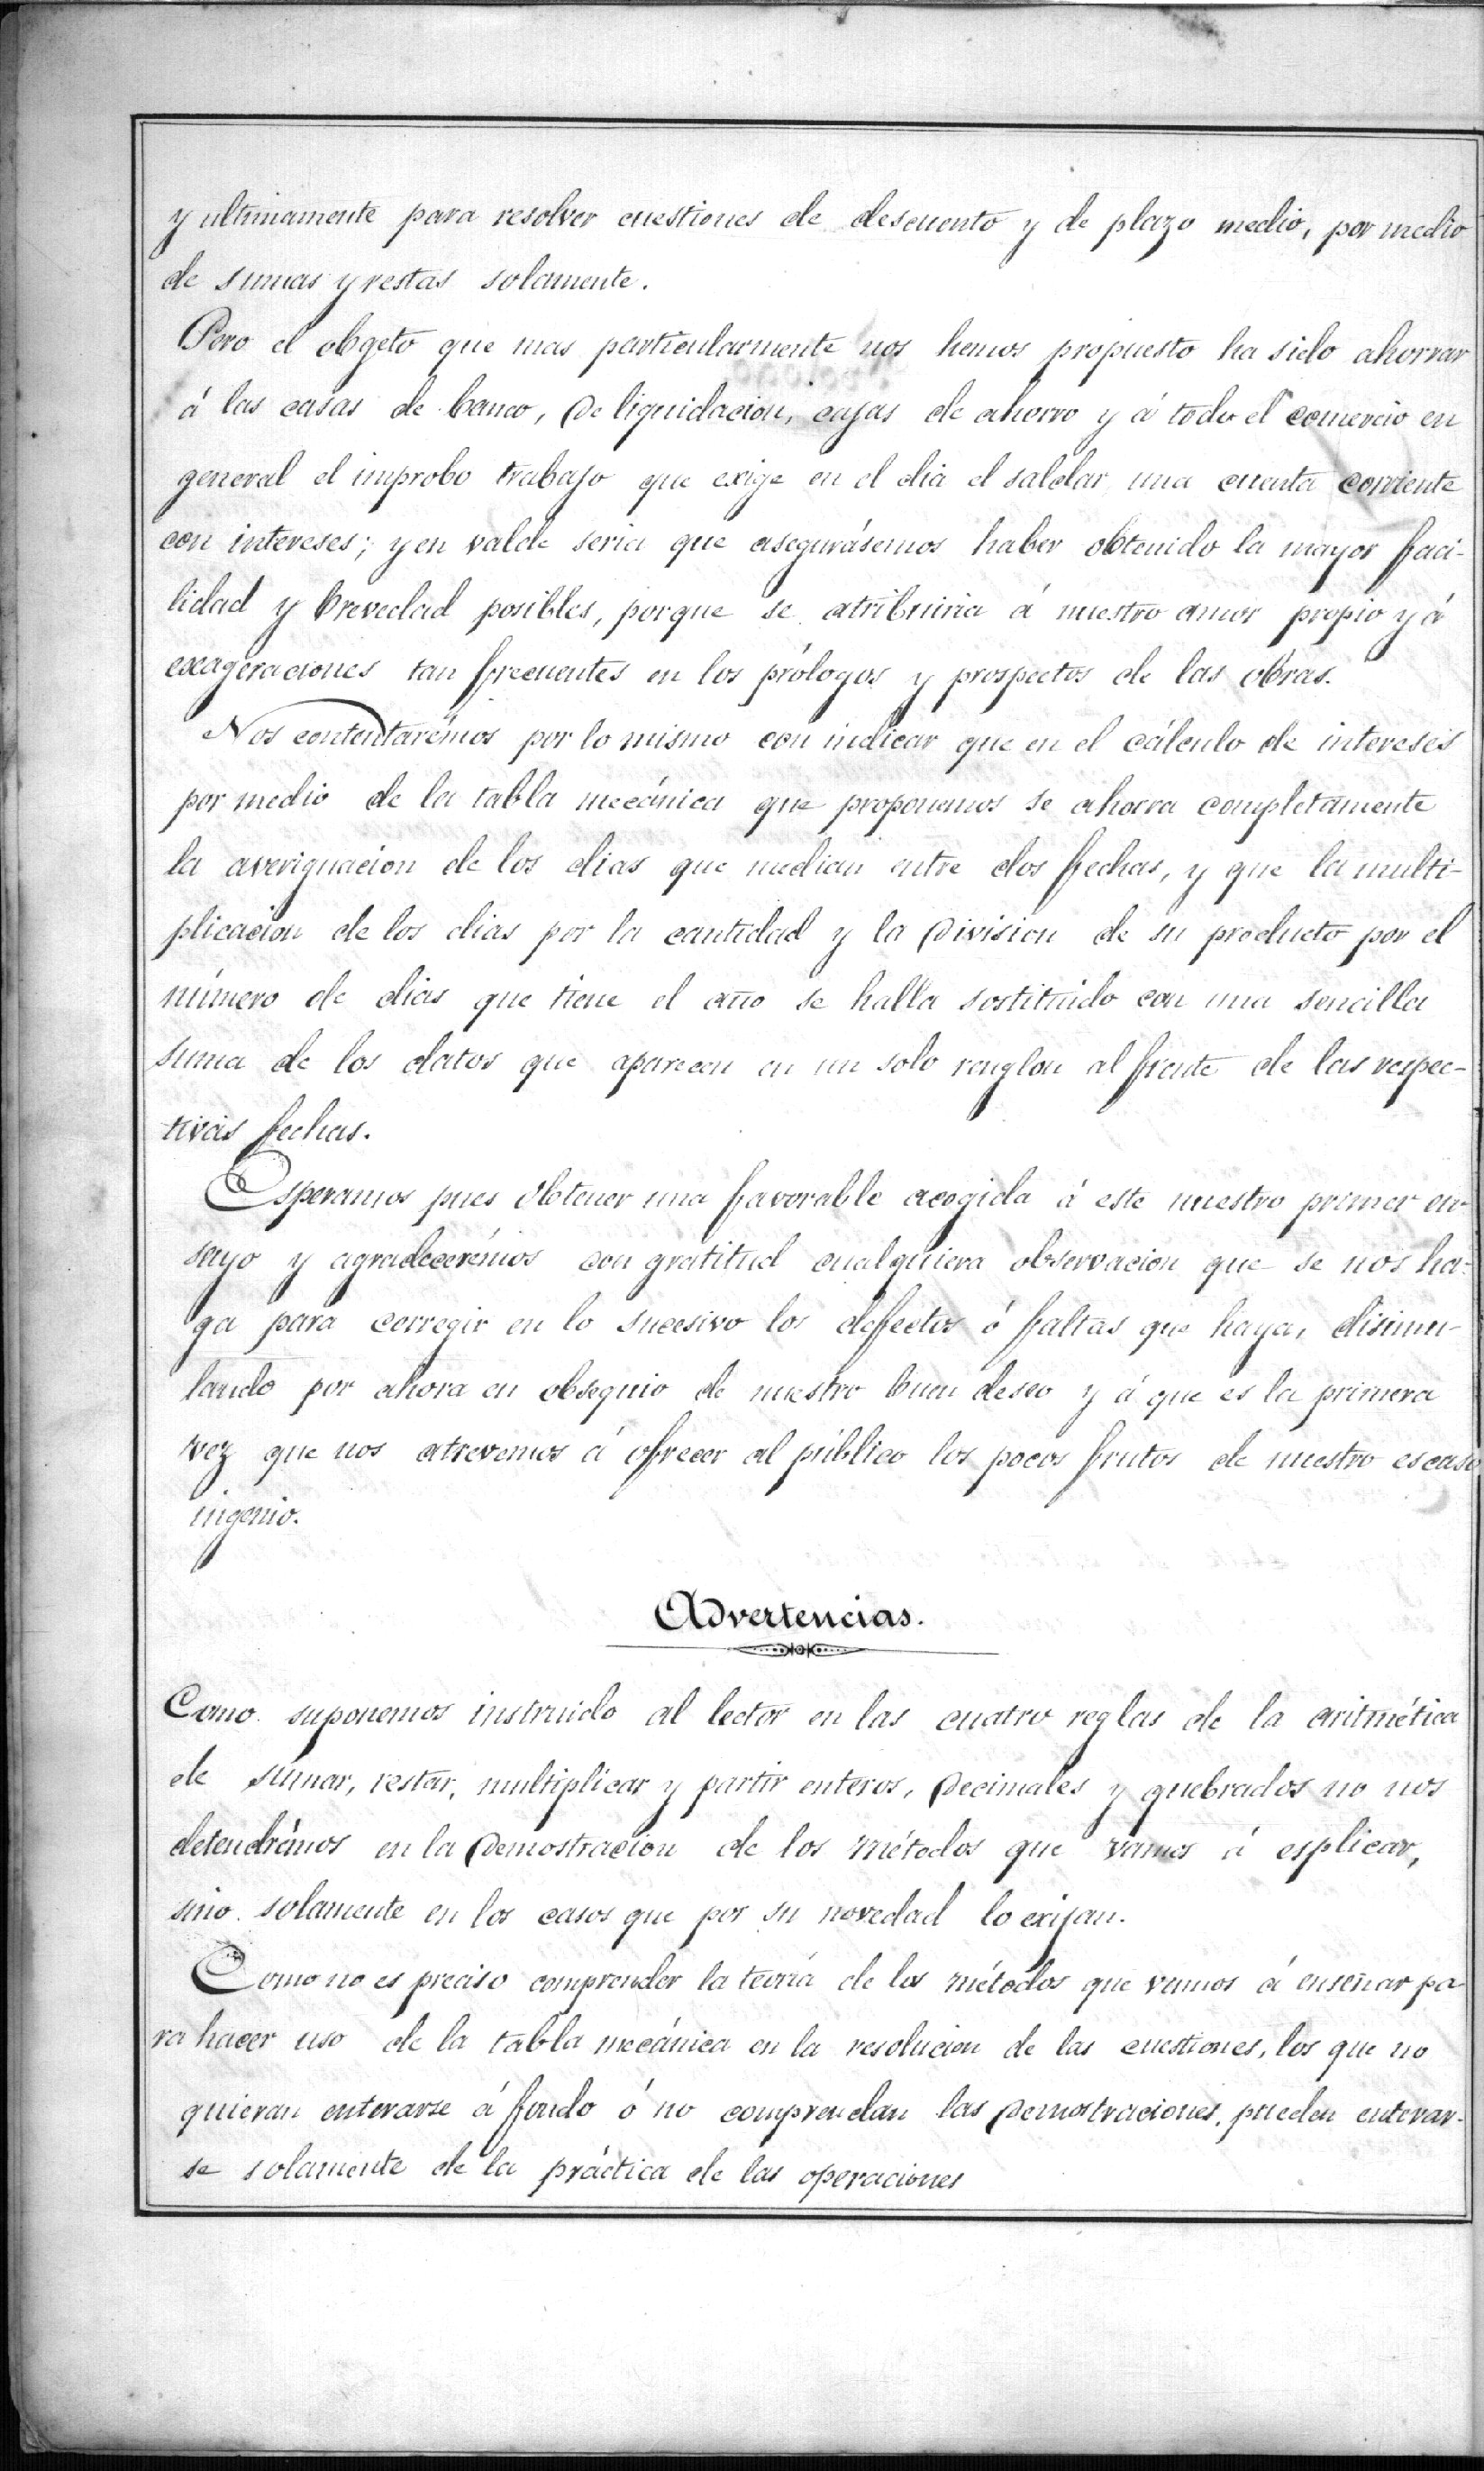 y ultimamente para resolver cuestiones de descuento y de plazo medio, por medio
de sumas y restas solamente.
Pero el obgeto que mas particularmente nos hemos propuesto ha sido ahorrar
á las casas de banco, de liquidacion, cajas de ahorro y á todo el comercio en
general el improbo trabajo que exige en el dia el saldar una cuenta corriente
con intereses; y en valde seria que asegurásemos haber obtenido la mayor faci-
lidad y brevedad posibles, porque se atribuiria á nuestro amor propio y á
exageraciones tan frecuentes en los prólogos y prospectos de las obras.
Nos contentarémos por lo mismo con indicar que en el cálculo de intereses
por medio de la tabla mecánica que proponemos se ahorra completamente
la averiguacion de los dias que median entre dos fechas, y que la multi-
plicacion de los dias por la cantidad y la division de su producto por el
número de dias que tiene el año se halla sostituido con una sencilla
suma de los datos que aparecen en un solo renglon al frente de las respec-
tivas fechas.
Esperamos pues obtener una favorable acogida á este nuestro primer en-
sayo y agradecerémos con gratitud cualquiera observacion que se nos ha-
ga para corregir en lo sucesivo los defectos ó faltas que haya, disimu-
lando por ahora en obsequio de nuestro buen deseo y á que es la primera
vez que nos atrevemos á ofrecer al público los pocos frutos de nuestro escaso
ingenio.
Advertencias.
Como suponemos instruido al lector en las cuatro reglas de la aritmética
de sumar, restar, multiplicar y partir enteros, decimales y quebrados no nos
detendrémos en la demostracion de los métodos que vamos á esplicar,
sino solamente en los casos que por su novedad lo exijan.
Como no es preciso comprender la teoría de los métodos que vamos á enseñar pa-
ra hacer uso de la tabla mecánica en la resolucion de las cuestiones, los que no
quieran enterarse á fondo ó no comprendan las demostraciones, pueden enterar-
se solamente de la práctica de las operaciones